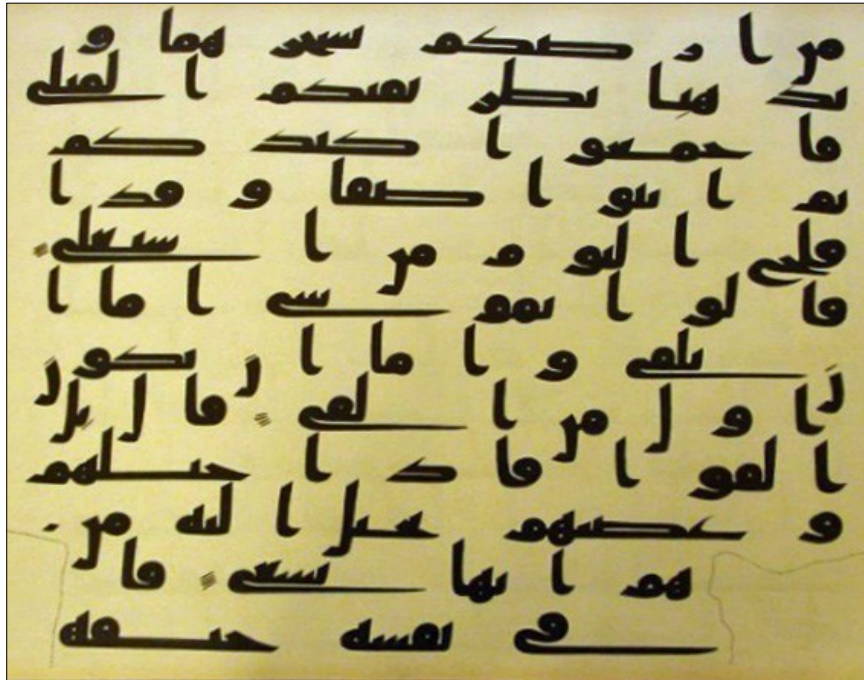 من ارضكم بسحرهما و
يذهبا بطريقتكم المثلى
فاجمعوا كيدكم
ثم ائتوا صفا وقد ا
فلح اليوم من استعلى
قالوا يموسى اما ا
ن تلقى واما ان نكو
ن اول من القى قال بل
القوا فاذا حبلهم
وعصيهم يخيل اليه من
هم انها تسعى فا
فى نفسه خيفه